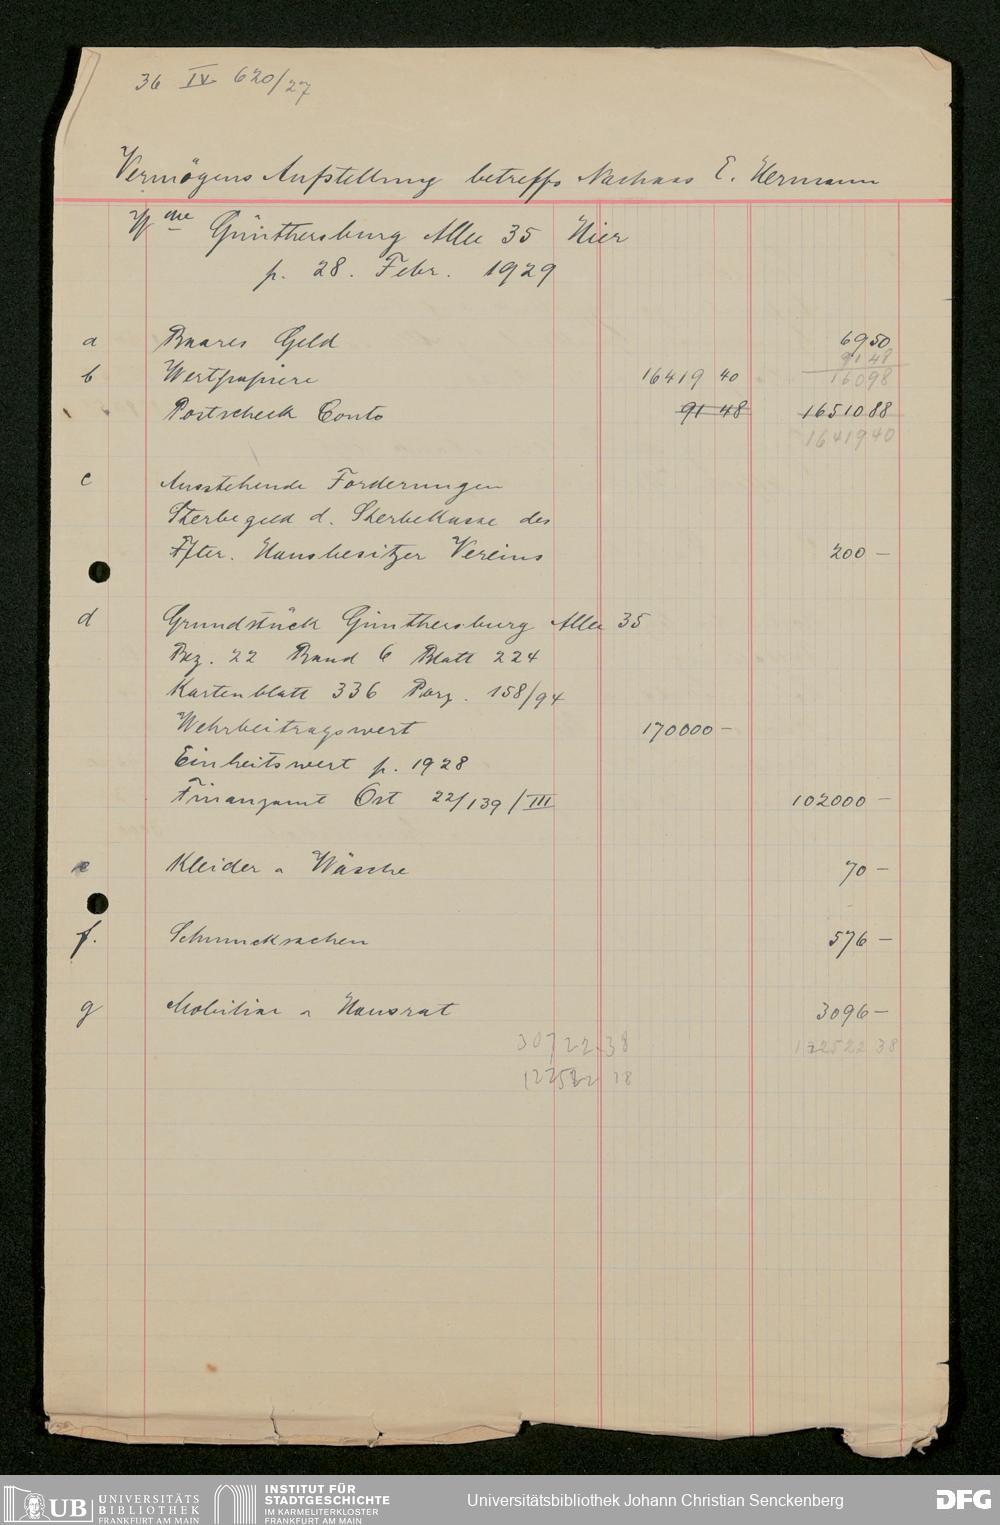 36 IV 620/27
Vermögens Aufstellung betreffs Nachlass E. Hermann
Wwe Günthersburg Allee 35 Hier
p. 28. Febr. 1929
a Baares Geld 69 50
91 48
b Wertpapiere 16419 40 160 98
Postscheck Conto 91 48 16510 88
16419 40
c Ausstehende Forderungen
Sterbegeld d. Sterbekasse des
Ffter. Hausbesitzer Vereins 200 —
d Grundstück Günthersburg Allee 35
Bez. 22 Band 6 Blatt 224
Kartenblatt 336 Parz. 158/94
Wehrbeitragswert 170000 —
Einheitswert p. 1928
Finanzamt Ost 22/139/III 102000 —
e Kleider u Wäsche 70 —
f. Schmucksachen 576 —
g Mobiliar u Hausrat 3096 —
30722.38 122522 38
UB UNIVERSITÄTS
BIBLIOTHEK
FRANKFURT AM MAIN
INSTITUT FÜR
STADTGESCHICHTE
IM KARMELITERKLOSTER
FRANKFURT AM MAIN
Universitätsbibliothek Johann Christian Senckenberg
DFG